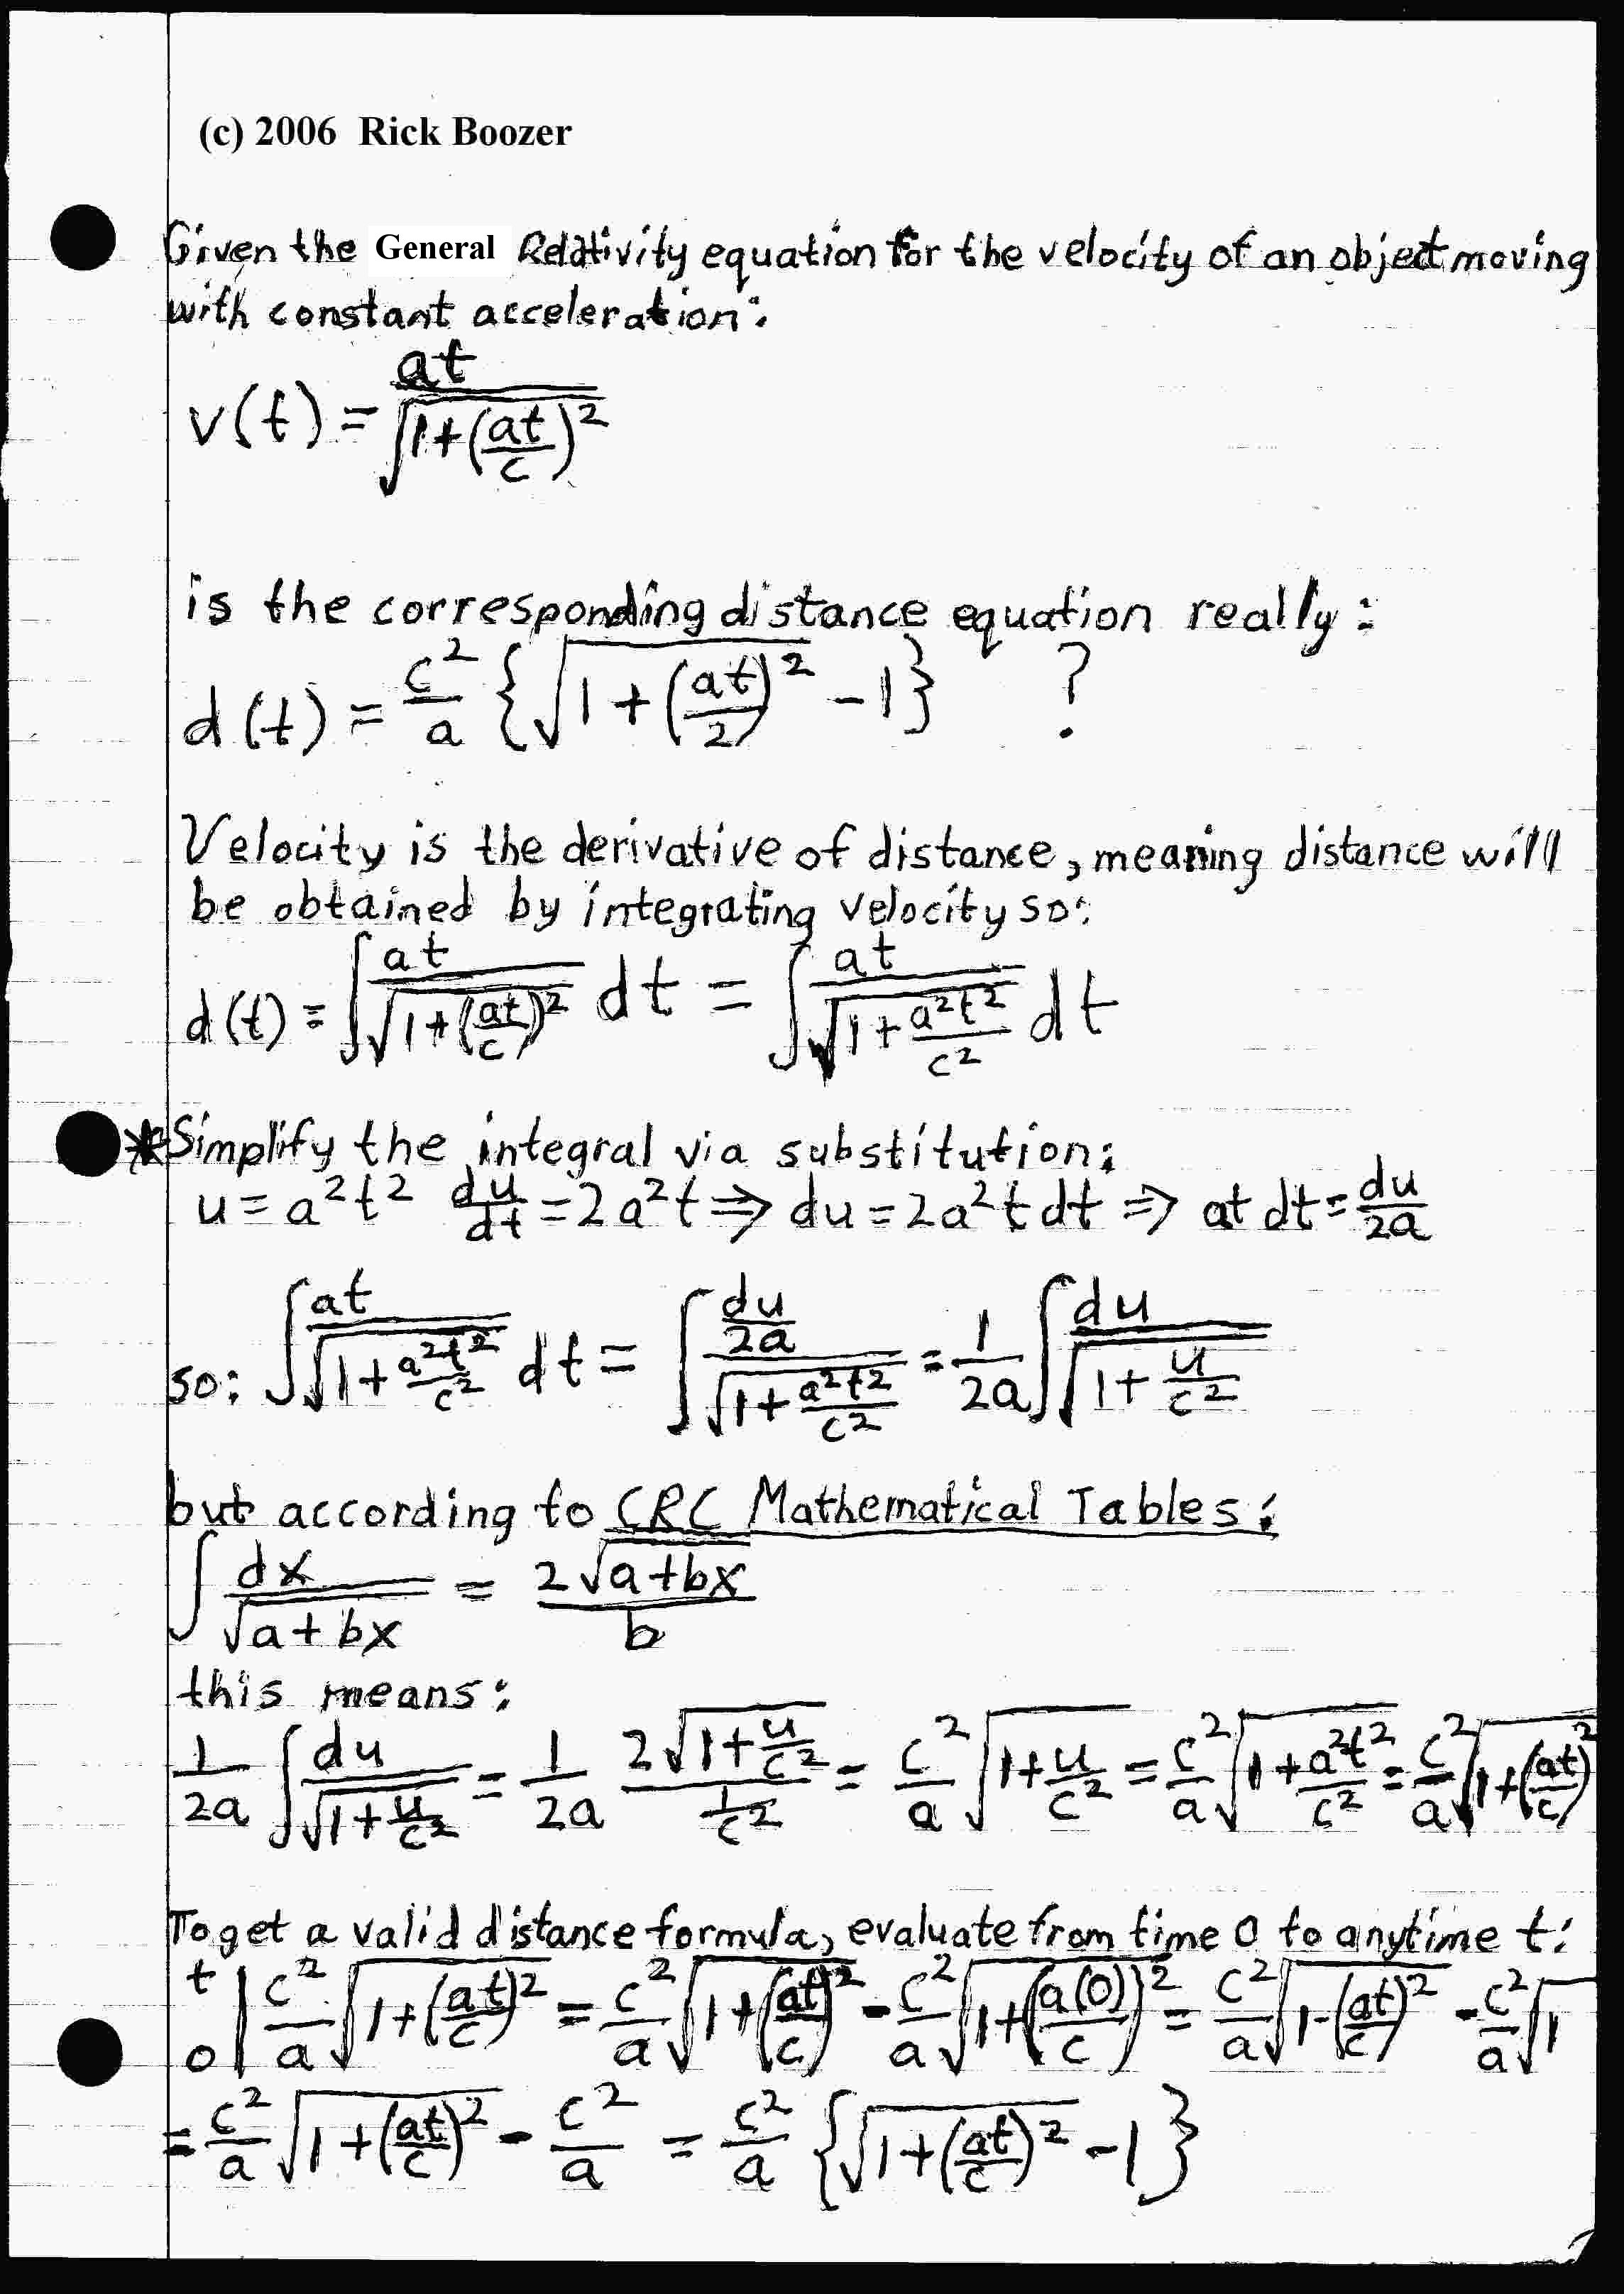 (c) 2006 Rick Boozer
Given the General Relativity equation for the velocity of an object moving
with constant acceleration:
v(t) = at / √(1+(at/c)²)
is the corresponding distance equation really:
d(t) = c²/a {√(1+(at/2)²) - 1} ?
Velocity is the derivative of distance, meaning distance will
be obtained by integrating velocity so:
d(t) = ∫ at / √(1+(at/c)²) dt = ∫ at / √(1+a²t²/c²) dt
*Simplify the integral via substitution:
u = a²t² du/dt = 2a²t ⇒ du = 2a²t dt ⇒ at dt = du/2a
so: ∫ at / √(1+a²t²/c²) dt = ∫ (du/2a) / √(1+a²t²/c²) = 1/2a ∫ du / √(1+u/c²)
but according to CRC Mathematical Tables:
∫ dx / √(a+bx) = 2√(a+bx) / b
this means:
1/2a ∫ du / √(1+u/c²) = 1/2a 2√(1+u/c²) / (1/c²) = c²/a √(1+u/c²) = c²/a √(1+a²t²/c²) = c²/a √(1+(at/c)²)
To get a valid distance formula, evaluate from time 0 to anytime t:
t 0 | c²/a √(1+(at/c)²) = c²/a √(1+(at/c)²) - c²/a √(1+(a(0)/c)²) = c²/a √(1-(at/c)²) - c²/a √1
= c²/a √(1+(at/c)²) - c²/a = c²/a {√(1+(at/c)²) - 1}